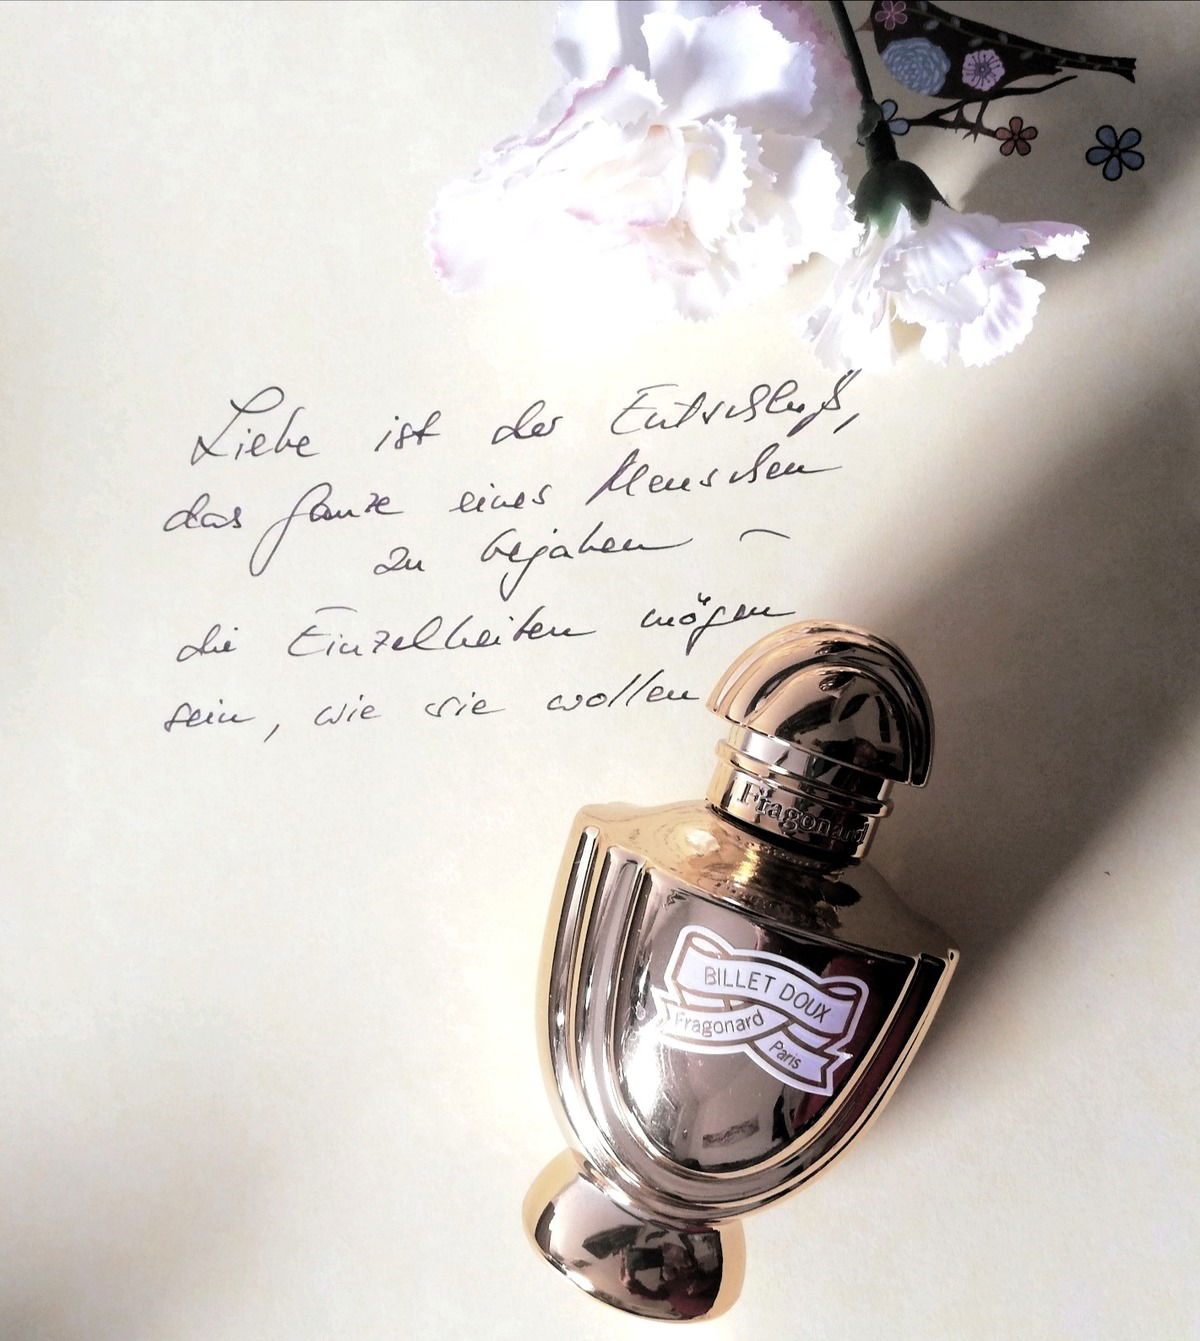 Liebe ist der Entschluß,
das Ganze eines Menschen
zu bejahen –
die Einzelheiten mögen
sein, wie sie wollen
Fragonard
BILLET DOUX
Fragonard
Paris